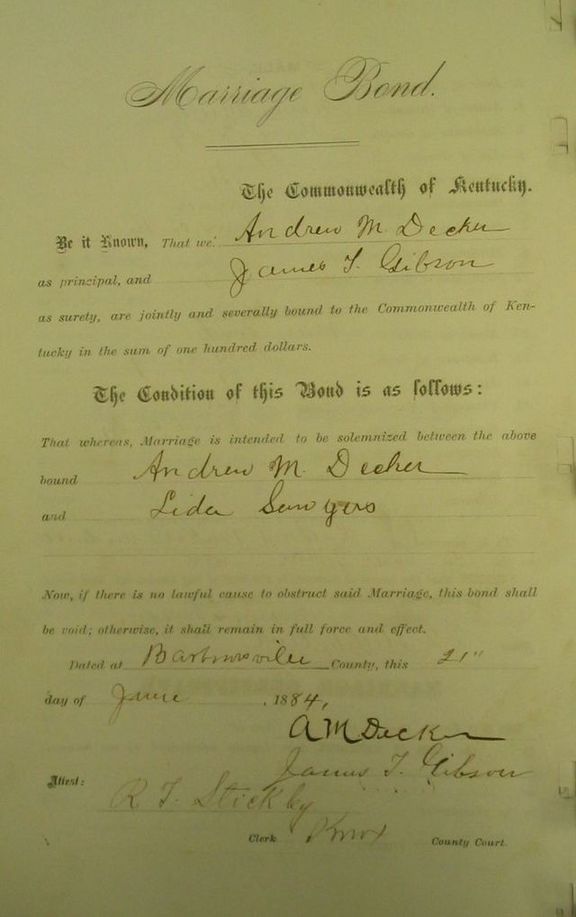 Marriage Bond.
The Commonwealth of Kentucky.
Be it Known, That we: Andrew M Decker
as principal, and James T. Gibson
as surety, are jointly and severally bound to the Commonwealth of Ken-
tucky in the sum of one hundred dollars.
The Condition of this Bond is as follows:
That whereas, Marriage is intended to be solemnized between the above
bound Andrew M Decker
and Lida Sawyers
Now, if there is no lawful cause to obstruct said Marriage, this bond shall
be void; otherwise, it shall remain in full force and effect.
Dated at Barbourville County, this 21"
day of June , 1884,
A M Decker
James T. Gibson
Attest:
R T Stickly
Clerk Knox County Court.